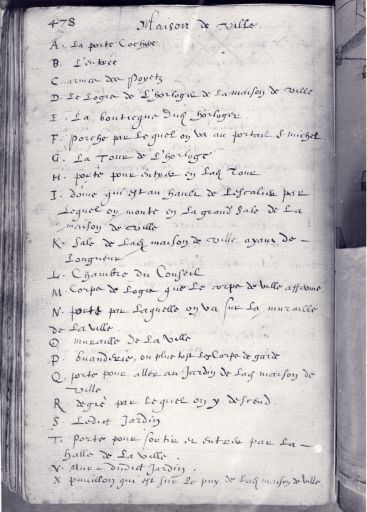 478 Maison de Ville.
A. La porte Cochere
B. L'entree
C. armes des Poyetz
D. Le Logis de L'horlogie de la maison de Ville
E. La bouticque dud. horloger
F. Porche par Lequel on va au portail S michel
G. La Tour de L'horloge
H. porte pour entrer en Lad. Tour
I. dôme qui est au hault de Lescalier par
Lequel on monte en La grand Sale de La
maison de Ville
K. Sale de Lad. maison de Ville, ayant de
Longueur
L. Chambre du Conseil
M. Corps de Logis que Le corps de Ville afferme
N. porte par Laquelle on va sur La muraille
de La Ville
O muraille de La Ville
P. buanderie, ou plus tost Corps de garde
Q. porte pour aller au Jardin de Lad. maison de
Ville
R degré par Lequel on y descend.
S. Ledict Jardin
T. Porte pour sortir et entrer par La
halle de La Ville.
V. Mur dudict Jardin.
X pavillon qui est sur Le puy de Lad. maison de Ville